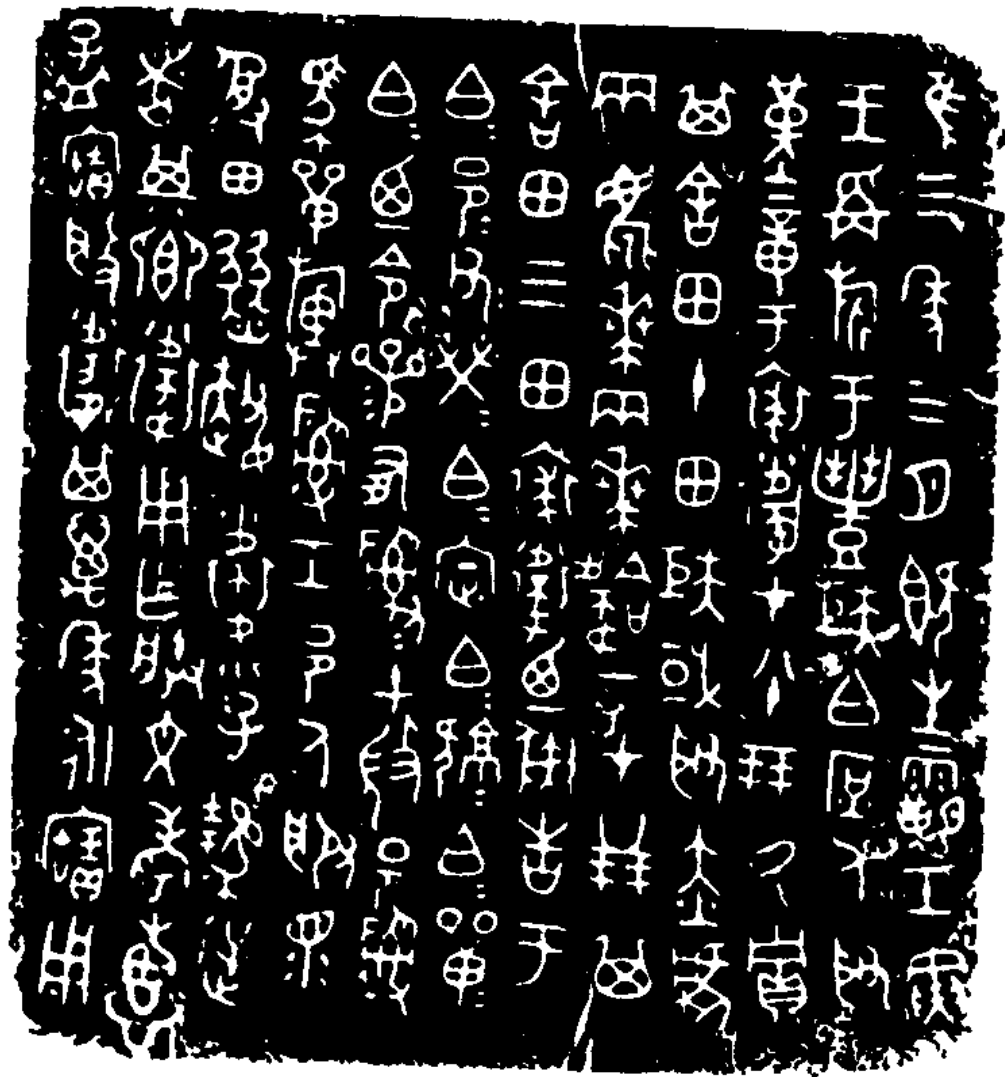 隹三年三月既生霸壬寅
王爯旂于豐矩白庶人取
堇章于裘衛才八十朋氒貯
其舍田十田矩或取赤虎
兩麀𠦪兩𠦪韐一才廿朋其
舍田三田裘衛乃彘告于
白邑父榮白定白白單
白乃令參有𤔲𤔲土微邑𤔲
馬單旟𤔲工邑人服眔
受田燹趞衛小子逆
者其鄉衛用乍朕文考惠
孟寶般衛其萬年永寶用